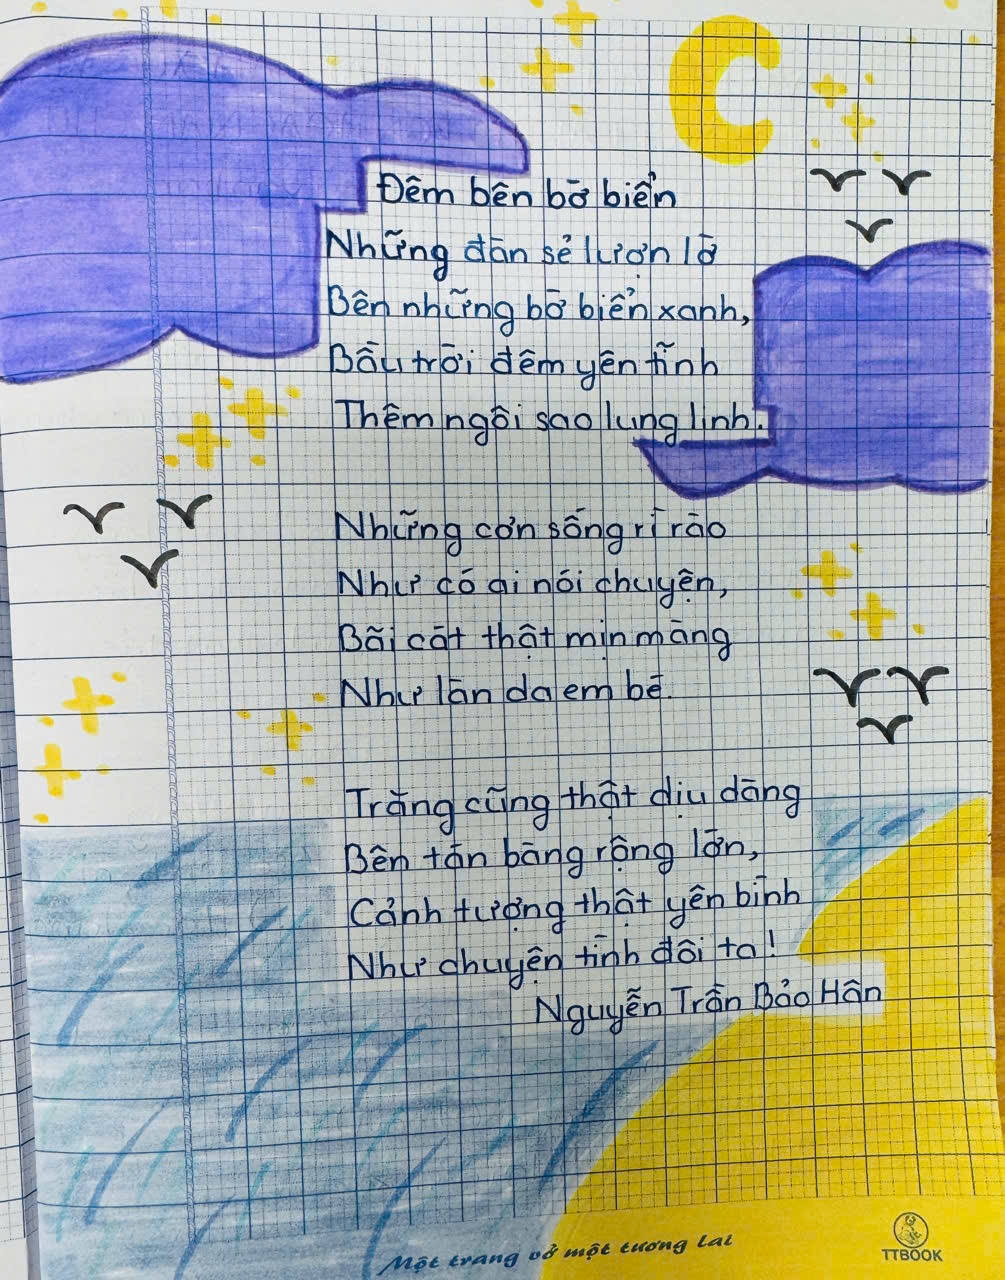 Đêm bên bờ biển
Những đàn sẻ lượn lờ
Bên những bờ biển xanh,
Bầu trời đêm yên tĩnh
Thêm ngôi sao lung linh.
Những cơn sóng rì rào
Như có ai nói chuyện,
Bãi cát thật mịn màng
Như làn da em bé.
Trăng cũng thật dịu dàng
Bên tán bàng rộng lớn,
Cảnh tượng thật yên bình
Như chuyện tình đôi ta!
Nguyễn Trần Bảo Hân
Một trang vở một tương lai
TTBOOK